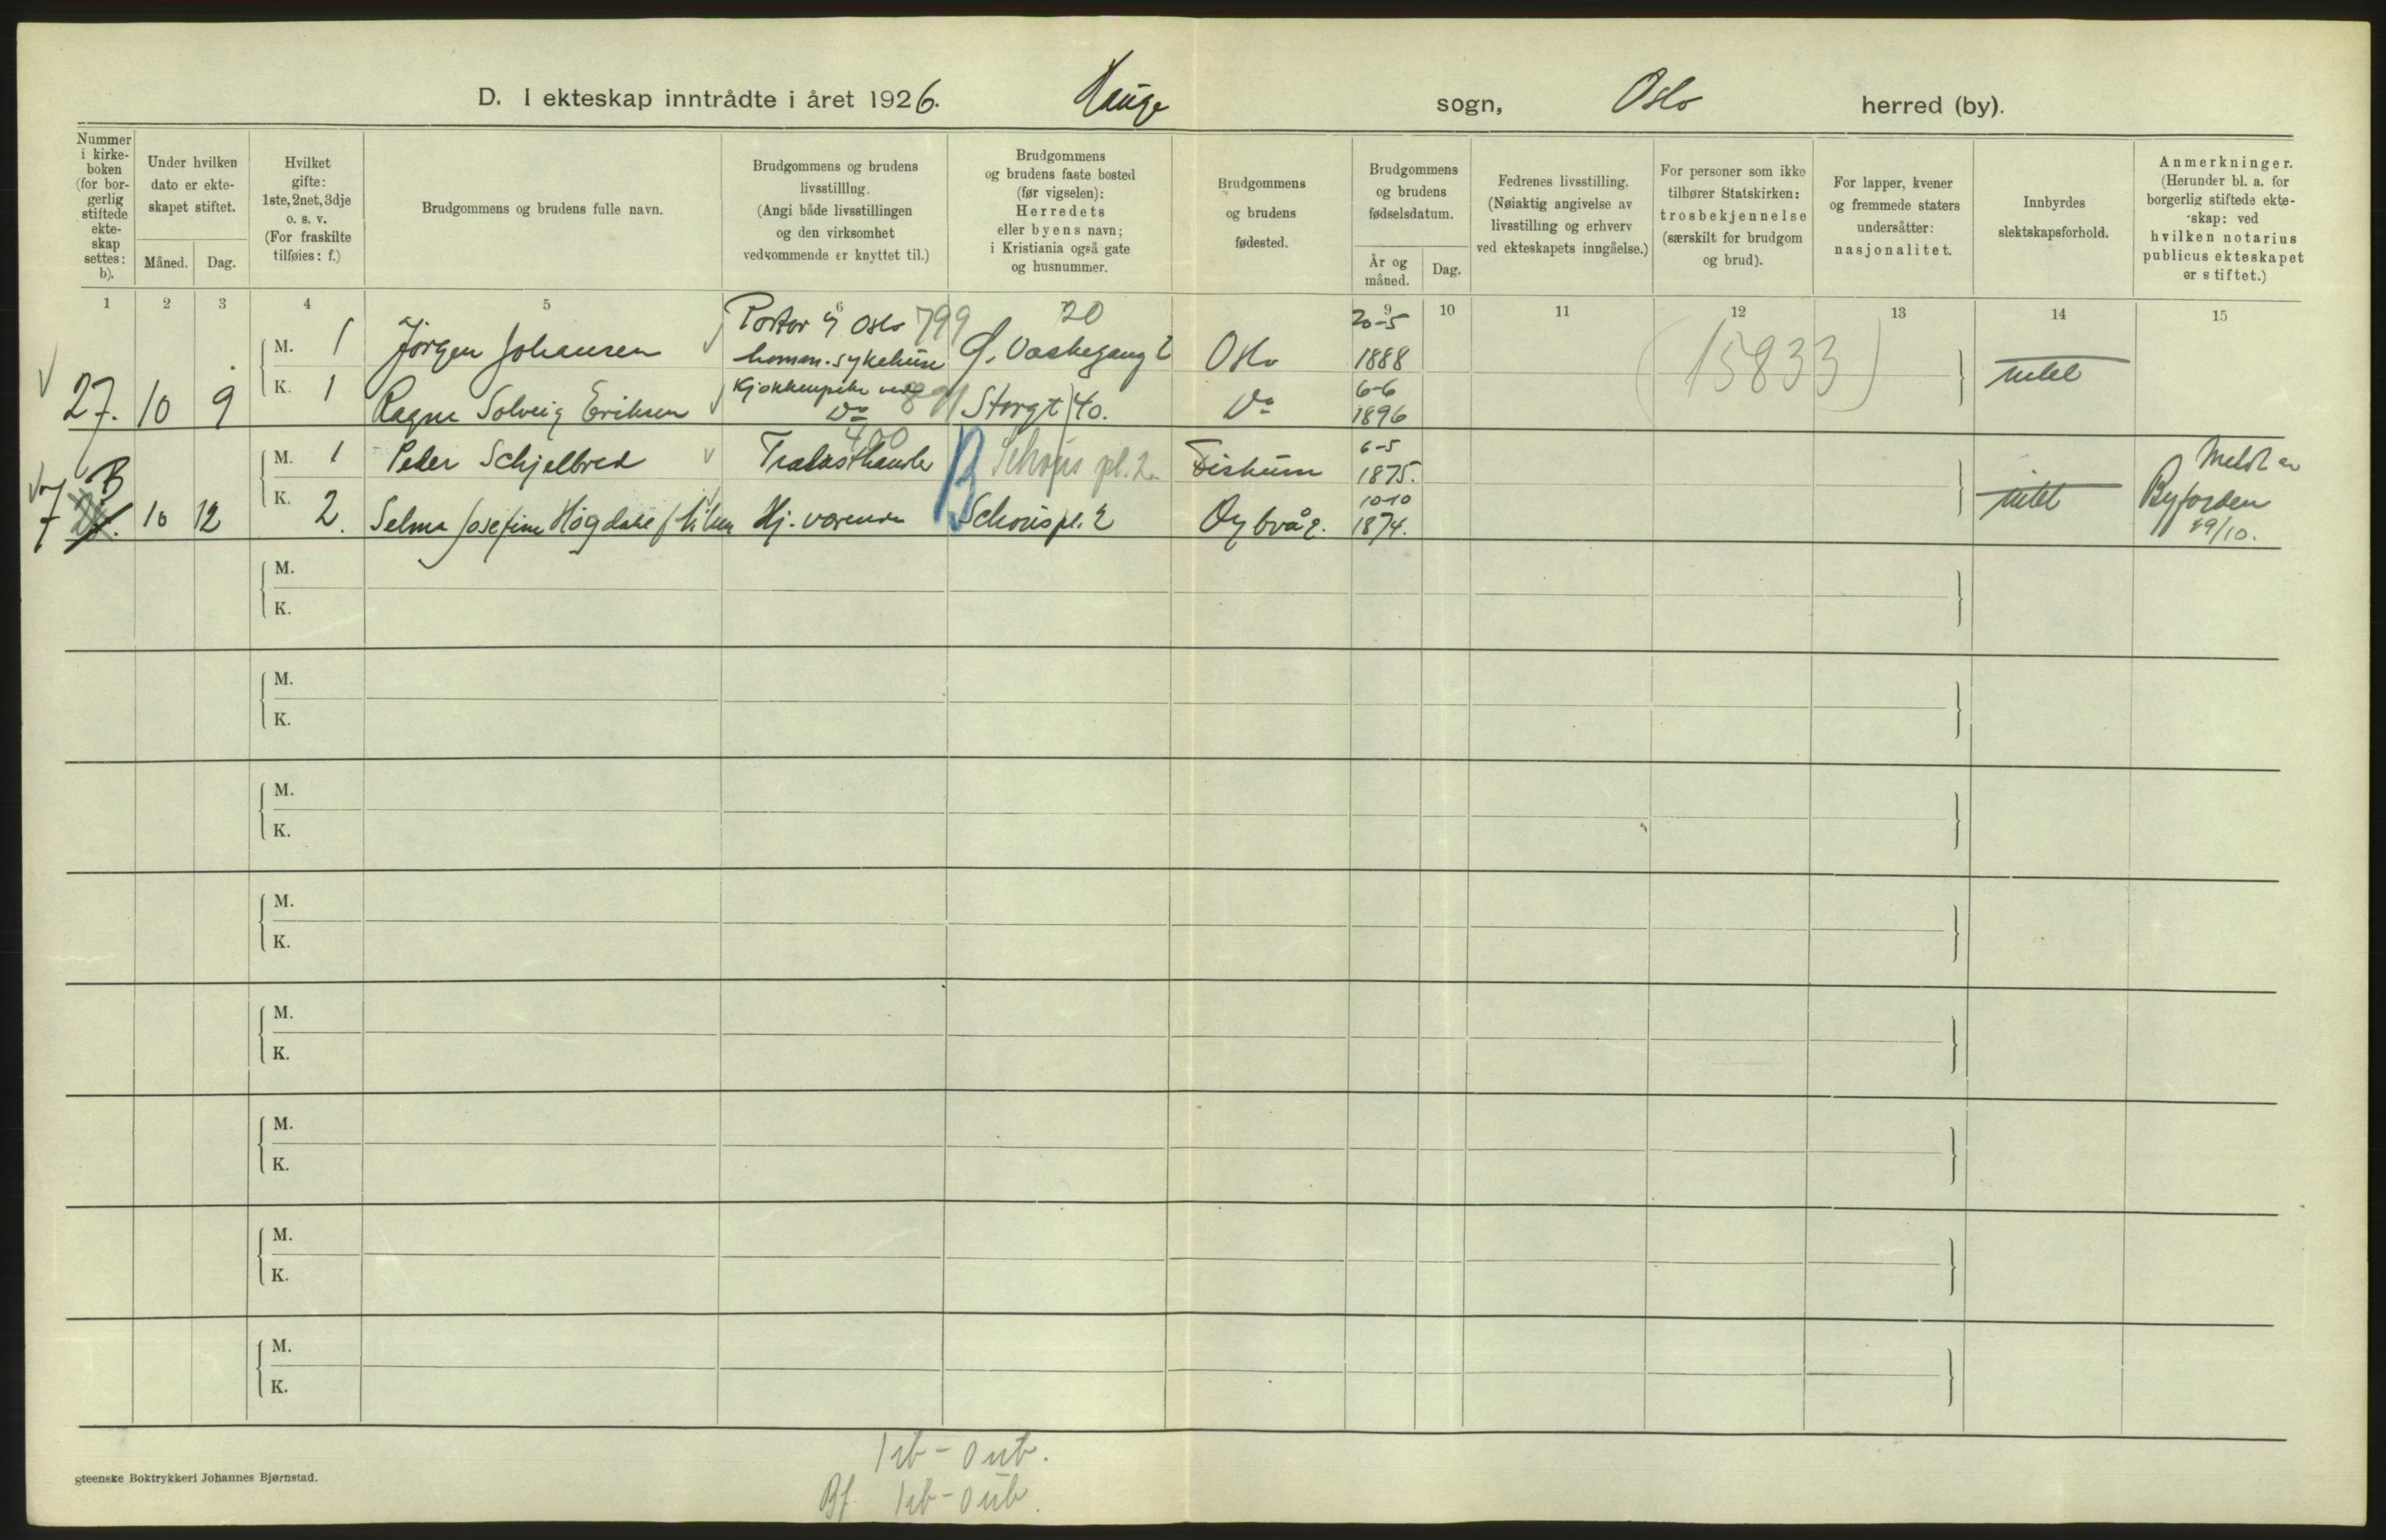 D. I ekteskap inntrådte i året 1926. Hauge sogn, Oslo herred (by).
Nummer i kirke- boken (for bor- gerlig stiftede ekte- skap settes: b).
Under hvilken dato er ekte- skapet stiftet.
Måned. Dag.
Hvilket gifte: 1ste, 2net, 3dje o. s. v. (For fraskilte tilføies: f.)
Brudgommens og brudens fulle navn.
Brudgommens og brudens livsstilling. (Angi både livsstillingen og den virksomhet vedkommende er knyttet til.)
Brudgommens og brudens faste bosted (før vigselen): Herredets eller byens navn; i Kristiania også gate og husnummer.
Brudgommens og brudens fødested.
Brudgommens og brudens fødselsdatum.
År og måned. Dag.
Fedrenes livsstilling. (Nøiaktig angivelse av livsstilling og erhverv ved ekteskapets inngåelse.)
For personer som ikke tilhører Statskirken: trosbekjennelse (særskilt for brudgom og brud).
For lapper, kvener og fremmede staters undersåtter: nasjonalitet.
Innbyrdes slektskapsforhold.
Anmerkninger. (Herunder bl. a. for borgerlig stiftede ekte- skap: ved hvilken notarius publicus ekteskapet er stiftet.)
1 2 3 4 5 6 9 10 11 12 13 14 15
Portør v Oslo 799 20 20-5
M. 1 Jörgen Johansen komm. sykehuse Vaskegang 2 Oslo 1888 (15833) intet
27. 10 9 K. 1 Ragna Solveig Eriksen Kjøkkenpike ved Do 891 Storgt 40. Do 6-6 1896
M. 1 Peder Schjelbred Trælasthandler 400 B Schous pl. 2 Fiskum 6-5 1875. Meldt av
B 7 10 12 K. 2. Selma Josefine Høgdahl f. Hj. værende Schouspl. 2 10-10 1874. intet Byfogden 29/10.
M.
K.
M.
K.
M.
K.
M.
K.
M.
K.
M.
K.
M.
K.
M.
K.
gteenske Boktrykkeri Johannes Bjørnstad.
1 ib - 0 ub.
Bf. 1 ib - 0 ub.